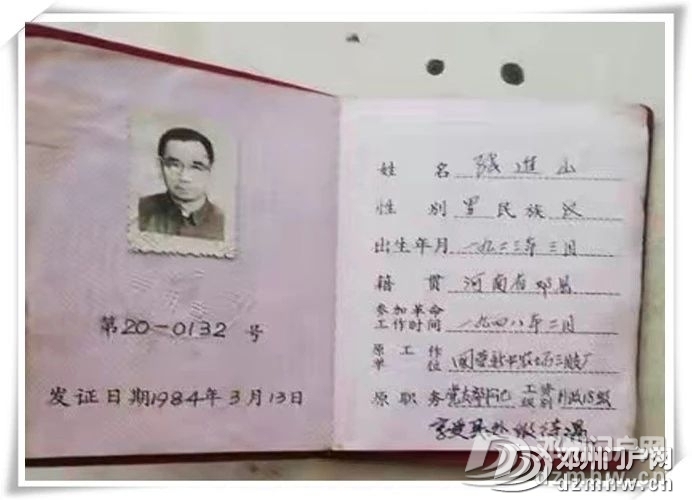 第20-0132号
发证日期1984年3月13日
姓名 进山
性别 男 民族 汉
出生年月 一九二三年三月
籍贯 河南省邓县
参加革命
工作时间 一九四八年二月
原工作
单位 国营新中农场三厂
原职务 党支部书记 工资级别 行政18级
享受县处级待遇
邓州门户网
dzmhw.cn
邓州门户网
dzmhw.cn